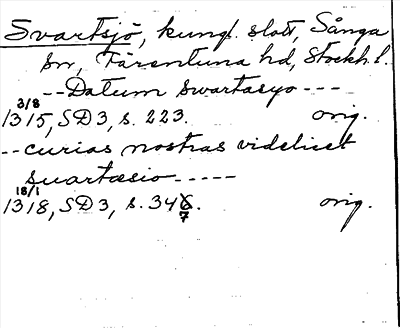 Svartsjö, kungl. slott, Sånga
sn, Färentuna hd, Stockh. l.
-- Datum swartasyo ---
3/8
1315, SD 3, s. 223. orig.
-- curias nostras videlicet
suartæsio -----
18/1
1318, SD 3, s. 346. orig.
7